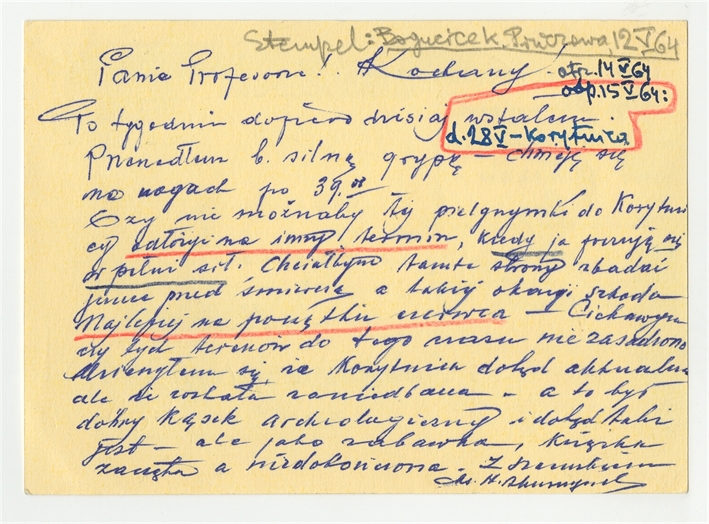 Stempel: Bogucice k. Pińczowa, 12 V 64
Panie Profesorze! Kochany!
otr. 14 V 64
odp. 15 V 64:
d. 28 V – Korytnica
Po tygodniu dopiero dzisiaj wstałem.
Przeszedłem b. silną grypę – chwieję się
na nogach po 39,
Czy nie możnaby tej pielgrzymki do Korytni
cy odłożyć na inny termin, kiedy ja poczuję się
w pełni sił. Chciałbym tamte strony zbadać
jeszcze przed śmiercią a takiej okazji szkoda
Najlepiej na początku czerwca – Ciekawym
czy tych terenów do tego czasu nie zasadzono
się że Korytnica dotąd aktualna
ale że została zaniedbana – a to był
dobry kąsek archeologiczny i dotąd taki
jest – ale jako zabawka, książka
zaczęta a niedokończona. Z szacunkiem
ks. H.